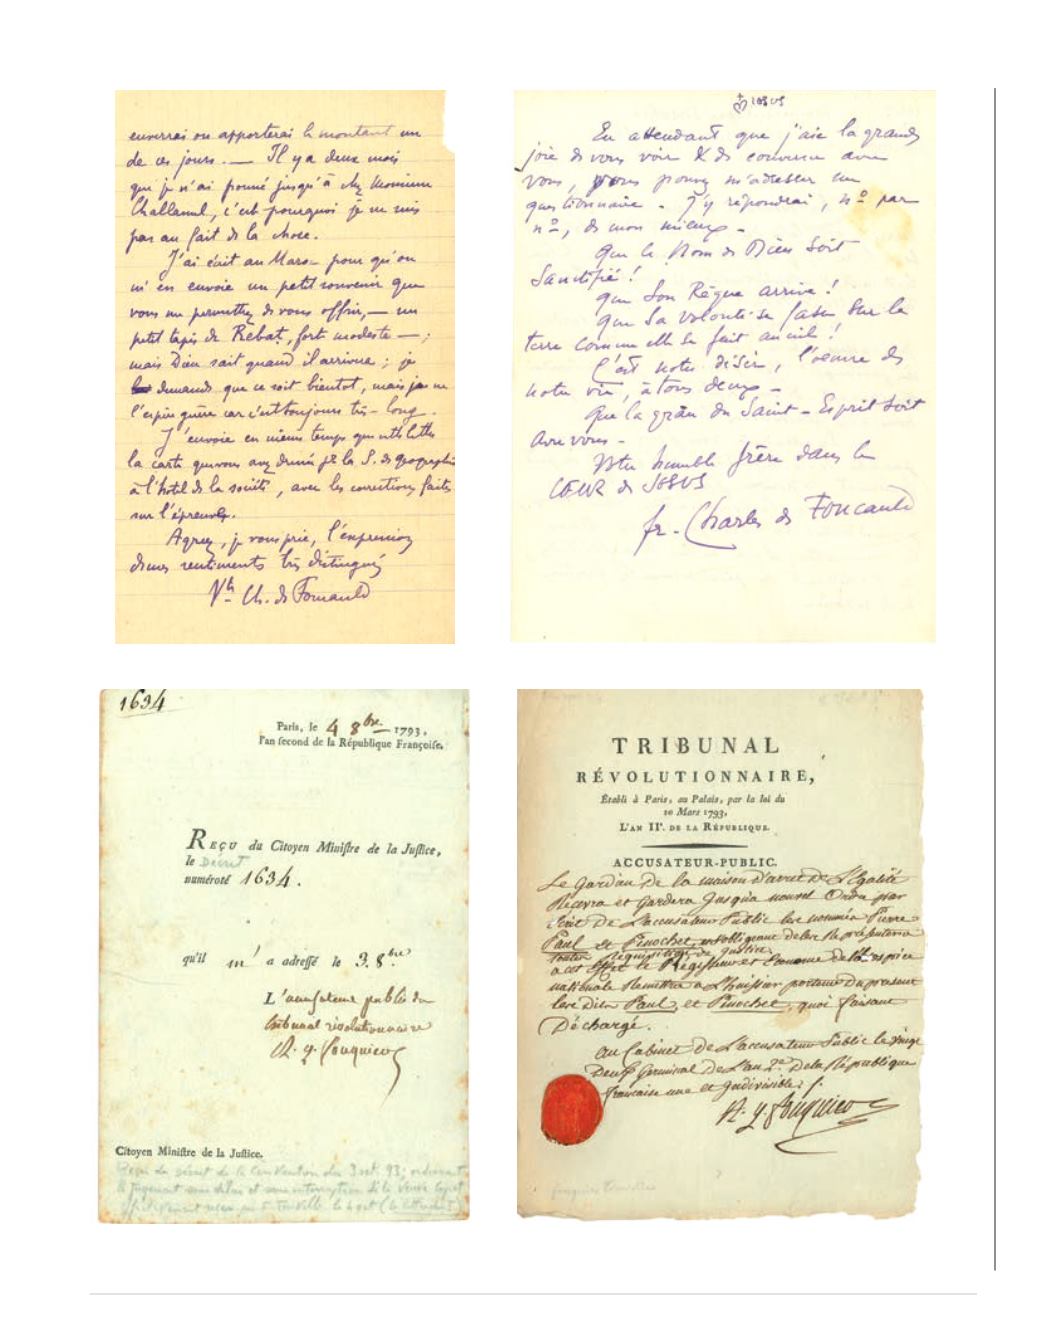 enverrai ou apporterai le montant un
de ces jours. — Il y a deux mois
que je n'ai poussé jusqu'à chez Monsieur
Challamel, c'est pourquoi je ne suis
pas au fait de la chose.
J'ai écrit au Maroc pour qu'on
m'en envoie un petit souvenir que
vous me permettrez de vous offrir, — un
petit tapis de Rebat, fort modeste — ;
mais Dieu sait quand il arrivera ; je
demande que ce soit bientôt, mais je ne
l'espère guère car c'est toujours très-long.
J'envoie en même temps que cette lettre
la carte que vous avez dressée pr la S. de géographie
à l'hôtel de la société, avec les corrections faites
sur l'épreuve.
Agréez, je vous prie, l'expression
de mes sentiments très distingués
Vte Ch. de Foucauld
JESUS
En attendant que j'aie la grande
joie de vous voir & de converser avec
vous, vous pouvez m'adresser un
questionnaire - J'y répondrai, no par
no, de mon mieux -
Que le Nom de Dieu soit
Sanctifié !
Que Son Règne arrive !
Que Sa volonté se fasse sur la
terre comme elle se fait au ciel !
C'est notre désir, l'oeuvre de
notre vie, à tous deux -
Que la grâce du Saint-Esprit soit
avec vous -
Votre humble frère dans le
COEUR de JESUS
fr. Charles de Foucauld
1634
Paris, le 4 8bre 1793,
l'an second de la République Françoise.
REÇU du Citoyen Ministre de la Justice,
le Décret
numéroté 1634.
qu'il m' a adressé le 3. 8bre
L'accusateur public du
tribunal révolutionnaire
A. q. Fouquier
Citoyen Ministre de la Justice.
Reçu du décret de la Convention du 3 oct. 93, ordonnant
le jugement sans délai et sans interruption de la veuve Capet
TRIBUNAL
RÉVOLUTIONNAIRE,
Établi à Paris, au Palais, par la loi du
10 Mars 1793,
L'AN IIe. DE LA RÉPUBLIQUE.
ACCUSATEUR-PUBLIC.
Le Gardien de la maison d'arret de L'Egalité
Recevra et gardera Jusqu'a nouvel Ordre par
Ecrit De L'accusateur Public les nommés Pierre
Paul et Pinochet, en obligeant de les Representer a
toutes réquisitions de justice
a cet Effet le Régisseur et Econome de l'hospice
nationale Remettra a L'huissier porteur Du present
les Dits Paul, et Pinochet, quoi faisant
Déchargé.
Au Cabinet De L'accusateur Public le vingt
Deux Germinal De L'an 2e. De la République
francaise une et Indivisible.
A. q. Fouquier
fouquier tinville